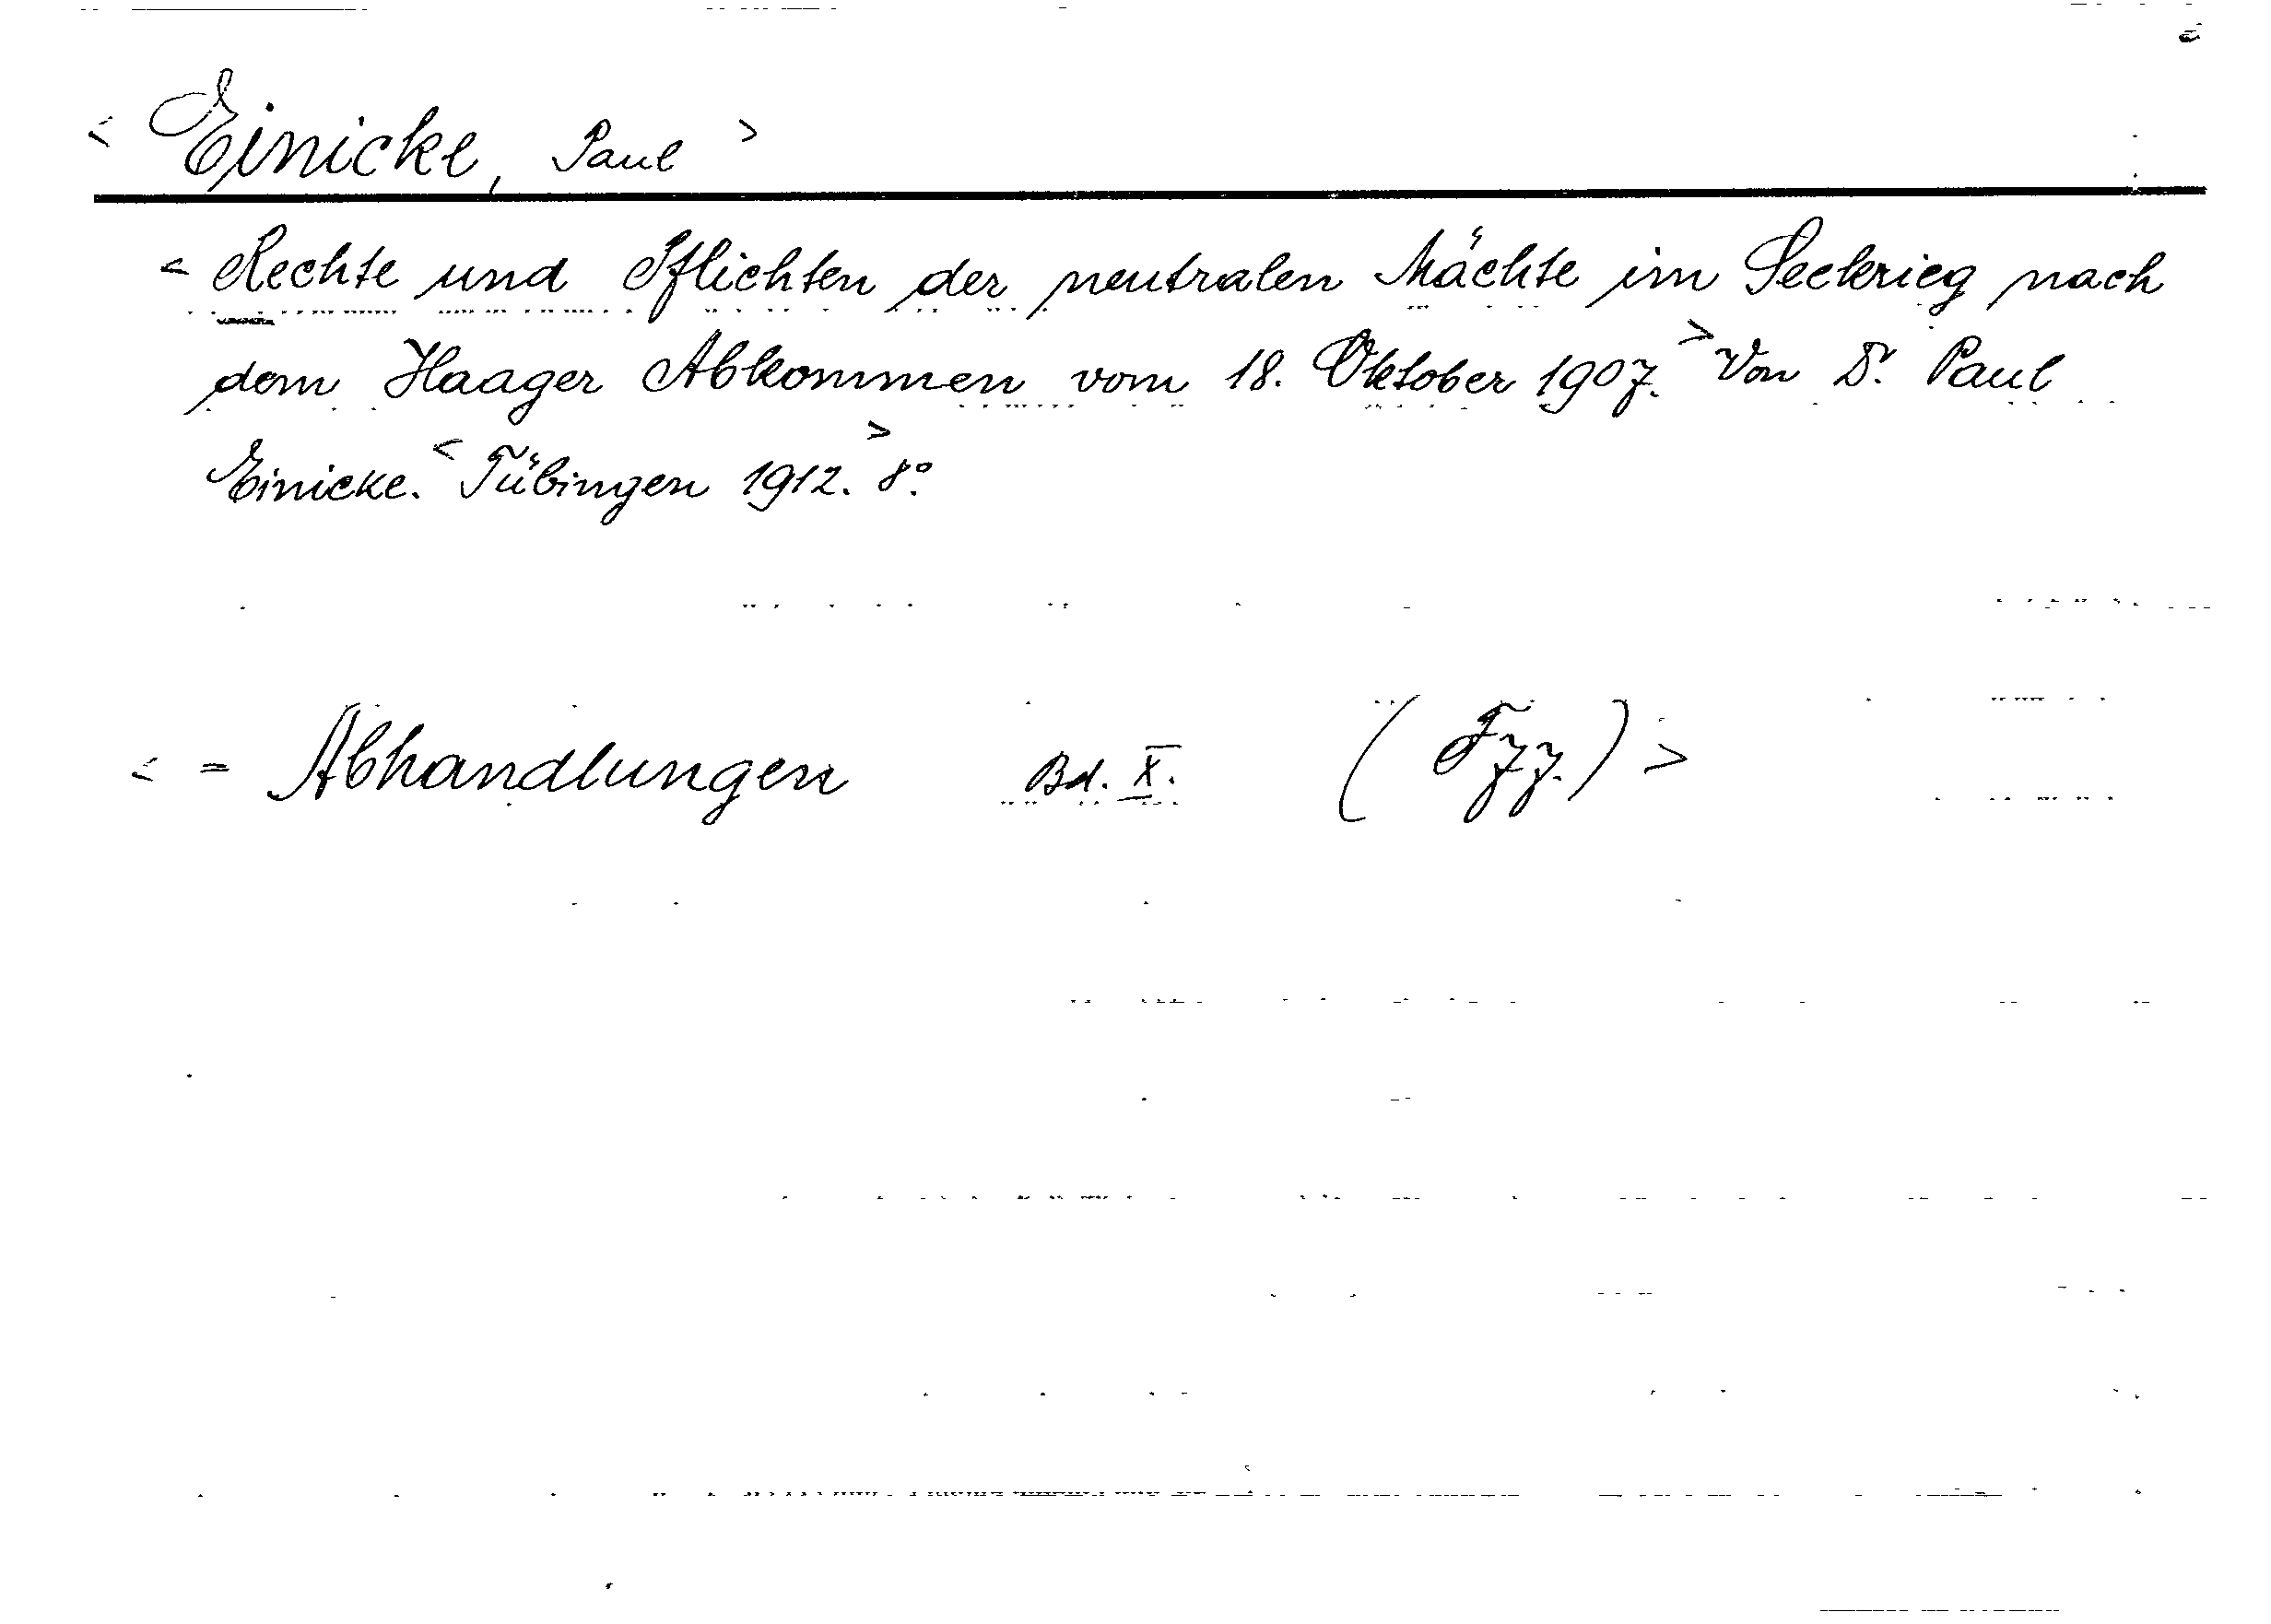 < Einicke, Paul >
< Rechte und Pflichten der neutralen Mächte im Seekrieg nach
dem Haager Abkommen vom 18. Oktober 1907. > Von Dr. Paul
Einicke. < Tübingen 1912. > 8º.
< = Abhandlungen Bd. X. ( Fzy. ) >